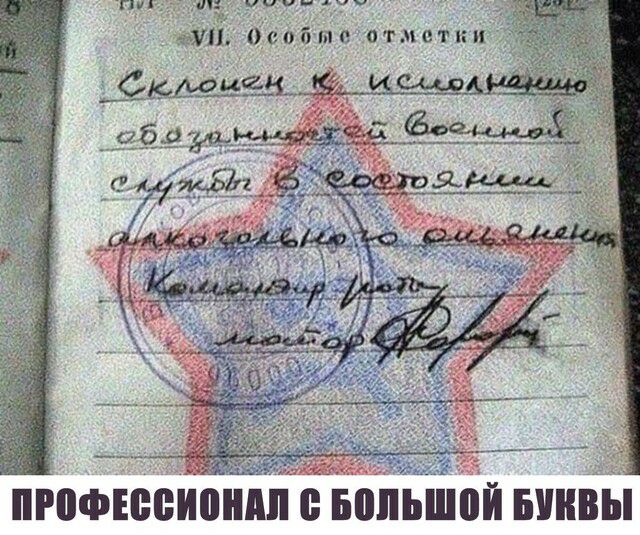 VII. Особые отметки
Склонен к исполнению
обязанностей Военной
службы в состоянии
алкогольного опьянения
Командир роты
майор
ПРОФЕССИОНАЛ С БОЛЬШОЙ БУКВЫ